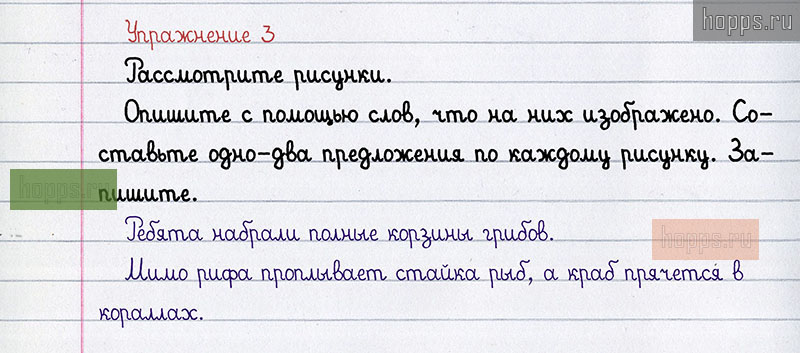 hopps.ru
Упражнение 3
Рассмотрите рисунки.
Опишите с помощью слов, что на них изображено. Со-
ставьте одно-два предложения по каждому рисунку. За-
hopps.ru
пишите.
Ребята набрали полные корзины грибов.
hopps.ru
Мимо рифа проплывает стайка рыб, а краб прячется в
кораллах.